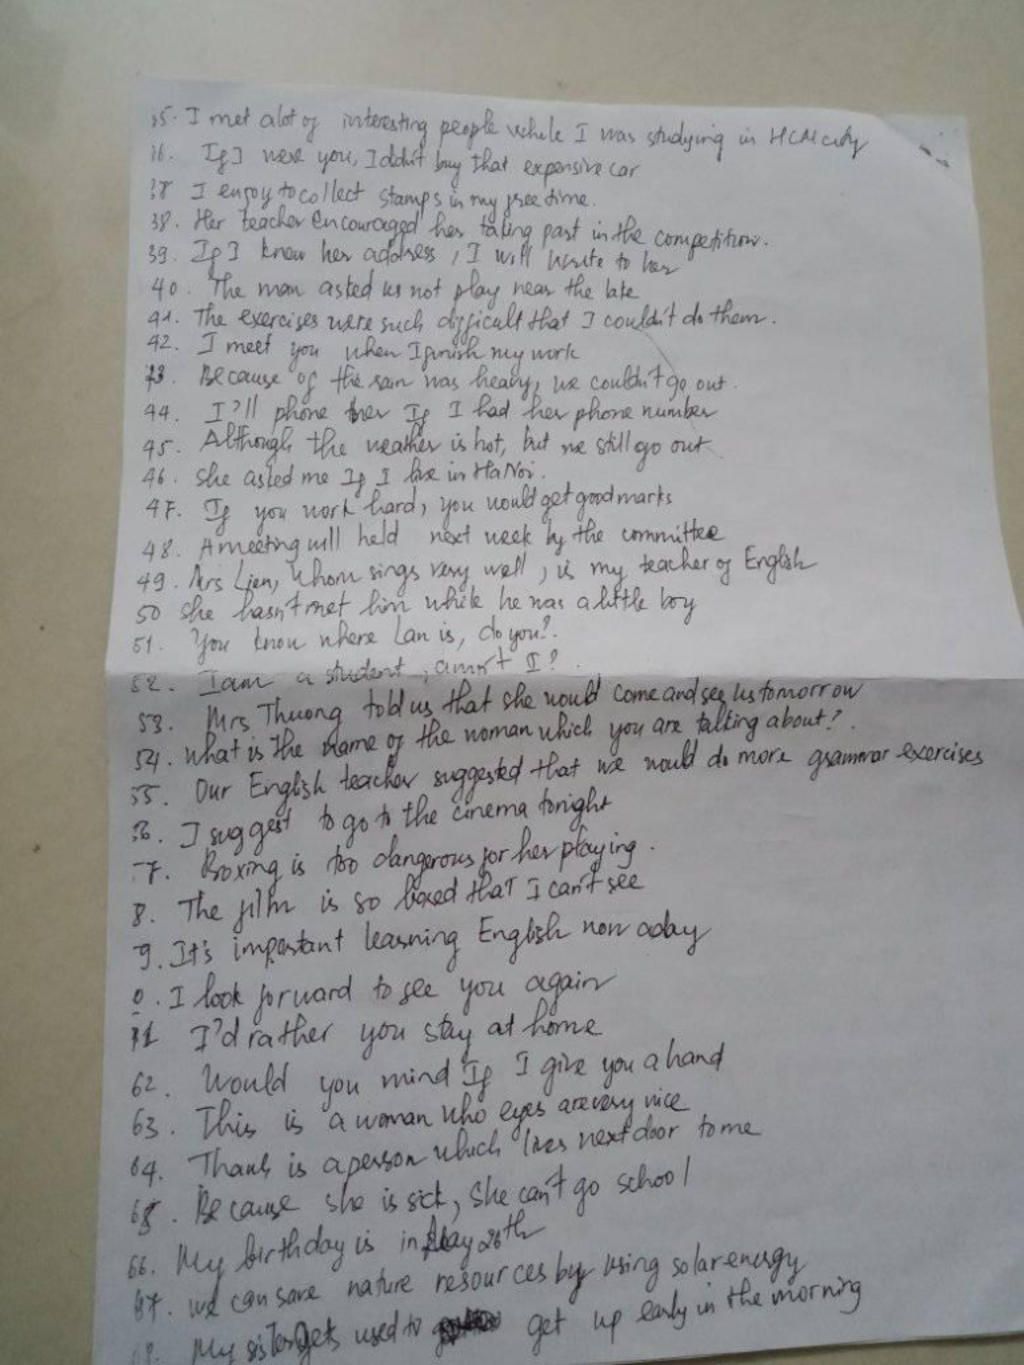 35. I met alot of interesting people while I was studying in HCM city
36. If I were you, I didn't buy that expensive car
38 I enjoy to collect stamps in my free time.
38. Her teacher encouraged her taking part in the competition.
39. If I knew her address, I will write to her
40. The man asked us not play near the lake
41. The exercises were such difficult that I couldn't do them.
42. I meet you when I finish my work
43. Because of the rain was heavy, we couldn't go out.
44. I'll phone her If I had her phone number
45. Although the weather is hot, but we still go out
46. She asked me If I live in Ha Noi.
47. If you work hard, you would get good marks
48. A meeting will held next week by the committee
49. Mrs Lien, whom sings very well, is my teacher of English
50 She hasn't met him while he was a little boy
51. You know where Lan is, do you?.
52. I am a student, amn't I?.
53. Mrs Thuong told us that she would come and see us tomorrow
54. What is the name of the woman which you are talking about?.
55. Our English teacher suggested that we would do more grammar exercises
56. I suggest to go to the cinema tonight
7. Boxing is too dangerous for her playing.
8. The film is so bored that I can't see
9. It's important learning English now aday
0. I look forward to see you again
I'd rather you stay at home
62. Would you mind If I give you a hand
63. This is a woman who eyes are very nice
64. Thanh is a person which lives next door to me
65. Because she is sick, She can't go school
66. My birthday is in May 26th
67. We can save nature resources by using solar energy
68. My sister gets used to get up early in the morning